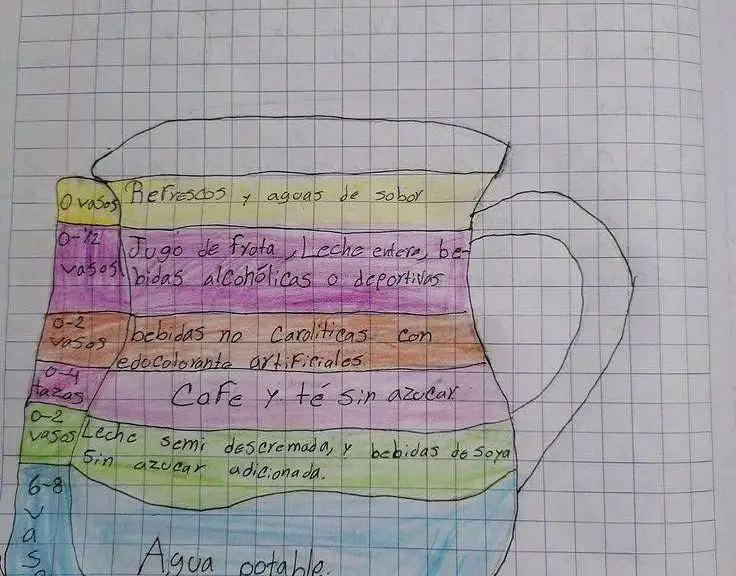 0 vasos
Refrescos y aguas de sobor
0-1/2
vasos
Jugo de frota, Leche entera, be-
bidas alcohólicas o deportivas
0-2
vasos
bebidas no Caroliticas con
edocolorante artificiales.
0-4
tazas
Cafe y té sin azucar
0-2
vasos
Leche semi descremada, y bebidas de soya
sin azucar adicionada.
6-8
v
a
s
o
Agua potable.